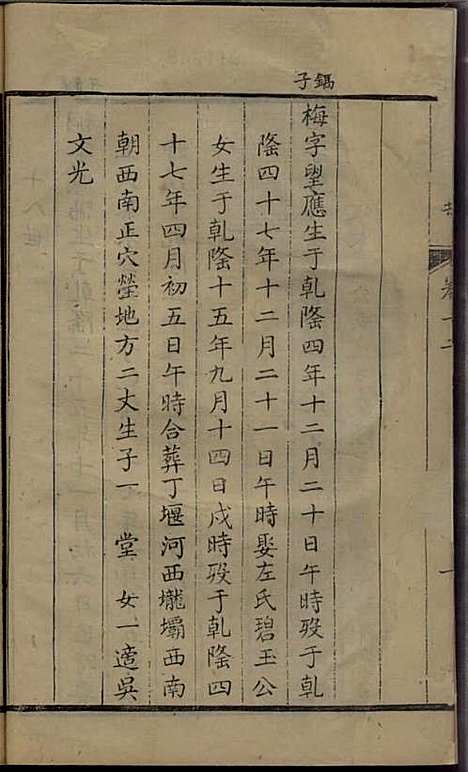 鎬子
梅字望應生于乹隆四年十二月二十日午時歿于乹
隆四十七年十二月二十一日午時娶左氏碧玉公
女生于乹隆十五年九月十四日戌時歿于乹隆四
十七年四月初五日午時合葬丁堰河西壠壩西南
朝西南正穴塋地方二丈生子一 堂 女一適吳
文光